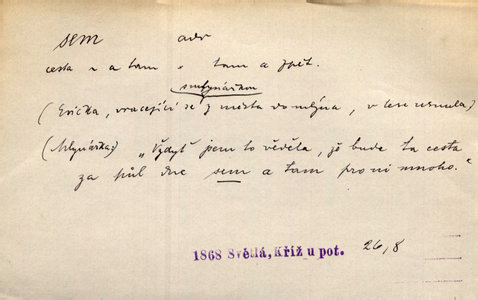 sem adv
cesta s a tam = tam a zpět.
s mlynářkou
(Evička, vracející se z města do mlýna, v lese usnula)
(Mlynářka:) „Vždyť jsem to věděla, jě bude ta cesta
za půl dne sem a tam pro ni mnoho."
1868 Světlá, Kříž u pot. 26,8